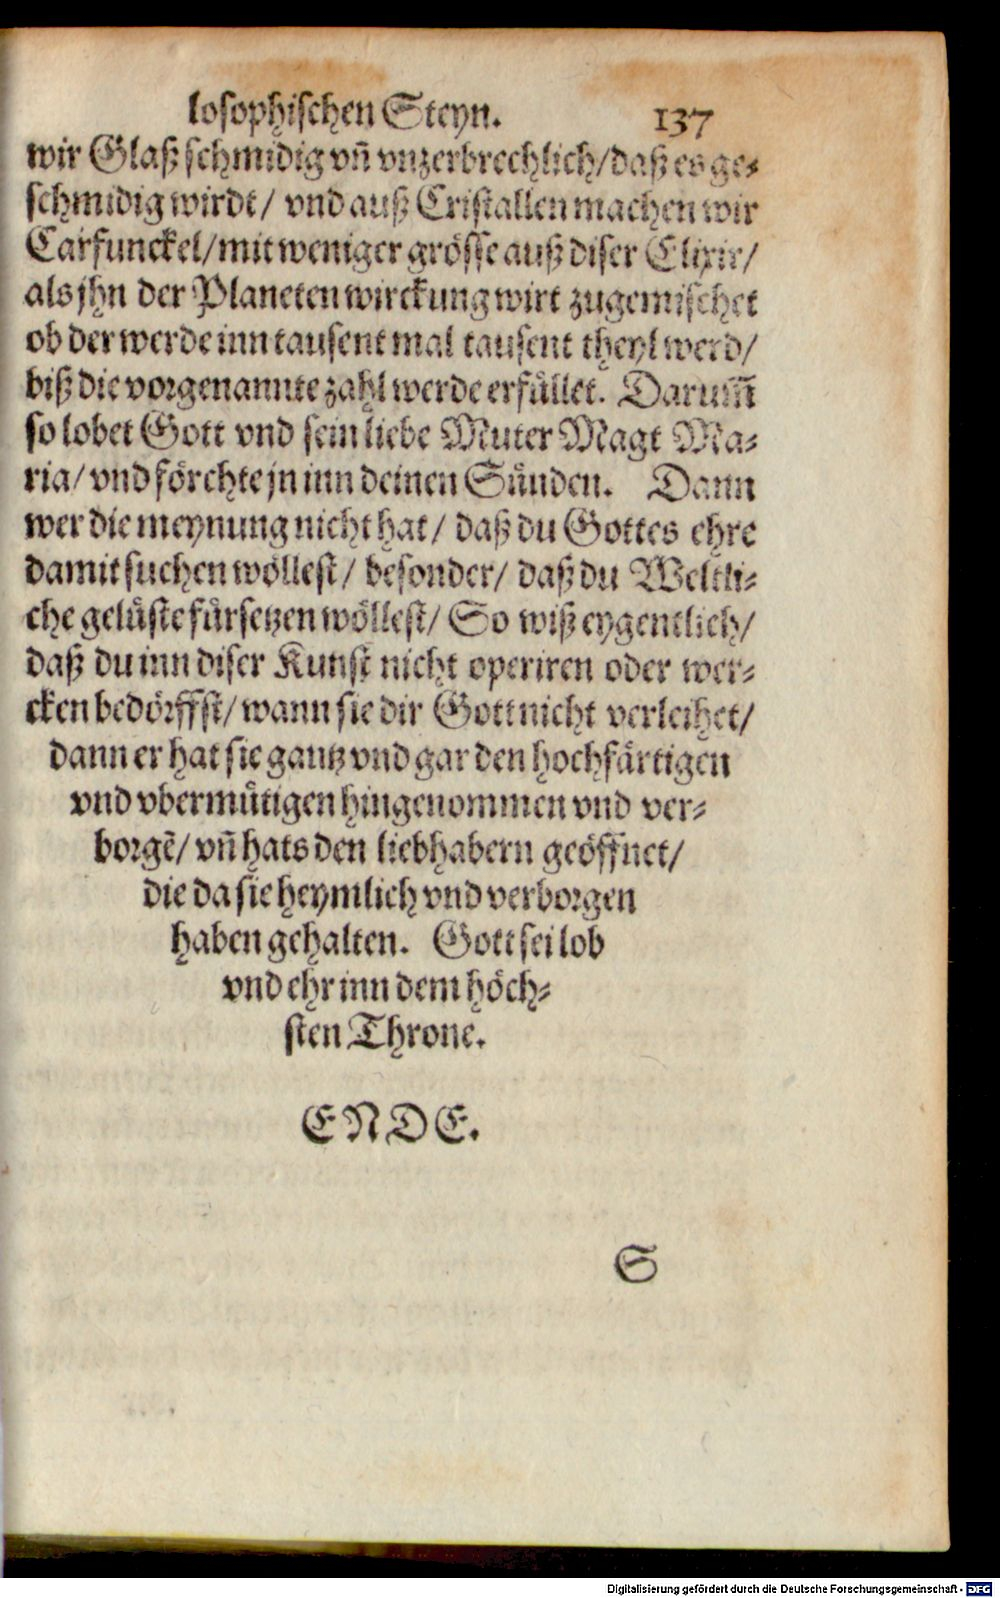 losophischen Steyn. 137
wir Glaß schmidig vñ vnzerbrechlich/ daß es ge-
schmidig wirdt/ vnd auß Cristallen machen wir
Carfunckel/ mit weniger grösse auß diser Elixir/
als jhn der Planeten wirckung wirt zugemischet
ob der werde inn tausent mal tausent theyl werd/
biß die vorgenannte zahl werde erfüllet. Darum̃
so lobet Gott vnd sein liebe Muter Magt Ma-
ria/ vnd förchte jn inn deinen Sünden. Dann
wer die meynung nicht hat/ daß du Gottes ehre
damit suchen wöllest/ besonder/ daß du Weltli-
che gelüste fürsetzen wöllest/ So wiß eygentlich/
daß du inn diser Kunst nicht operiren oder wer-
cken bedörffst/ wann sie dir Gott nicht verleihet/
dann er hat sie gantz vnd gar den hochfärtigen
vnd vbermütigen hingenommen vnd ver-
borgẽ/ vñ hats den liebhabern geöffnet/
die da sie heymlich vnd verborgen
haben gehalten. Gott sei lob
vnd ehr inn dem höch-
sten Throne.
ENDE.
S
Digitalisierung gefördert durch die Deutsche Forschungsgemeinschaft - DFG